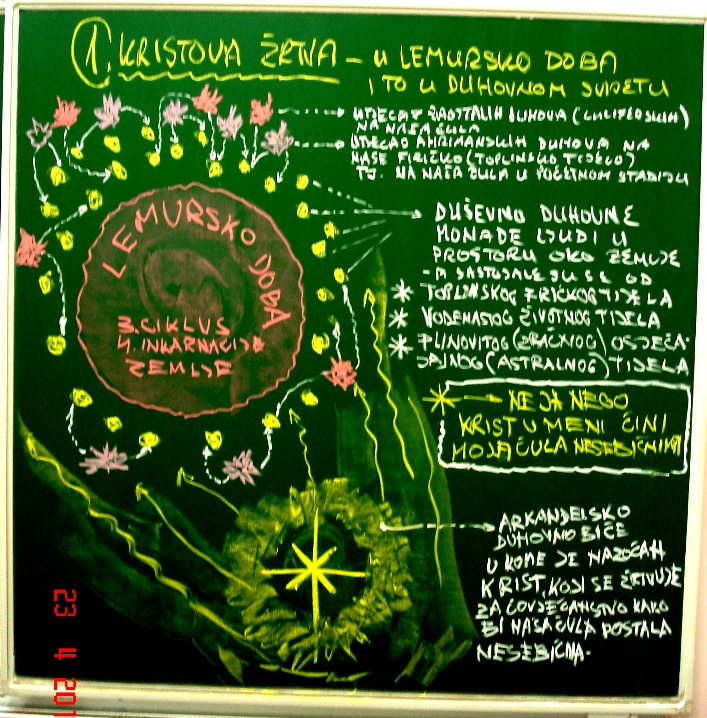 1. KRISTOVA ŽRTVA - U LEMURSKO DOBA
I TO U DUHOVNOM SVIJETU
UTJECAJ ZAOSTALIH DUHOVA (LUCIFERSKIH)
NA NAŠA ČULA
UTJECAJ AHRIMANSKIH DUHOVA NA
NAŠE FIZIČKO (TOPLINSKO TIJELO)
TJ. NA NAŠA ČULA U POČETNOM STADIJU
LEMURSKO DOBA
3. CIKLUS
4. INKARNACIJE
ZEMLJE
DUŠEVNO DUHOVNE
MONADE LJUDI U
PROSTORU OKO ZEMLJE
- A SASTOJALE SU SE OD
* TOPLINSKOG FIZIČKOG TIJELA
* VODENASTOG ŽIVOTNOG TIJELA
* PLINOVITOG (ZRAČNOG) OSJEĆA-
JAJNOG (ASTRALNOG) TIJELA
NE JA NEGO
KRIST U MENI ČINI
MOJA ČULA NESEBIČNIMA
ARKANĐELSKO
DUHOVNO BIĆE
U KOME JE NAZOČAN
KRIST, KOJI SE ŽRTVUJE
ZA ČOVJEČANSTVO KAKO
BI NAŠA ČULA POSTALA
NESEBIČNA.
23 4 201